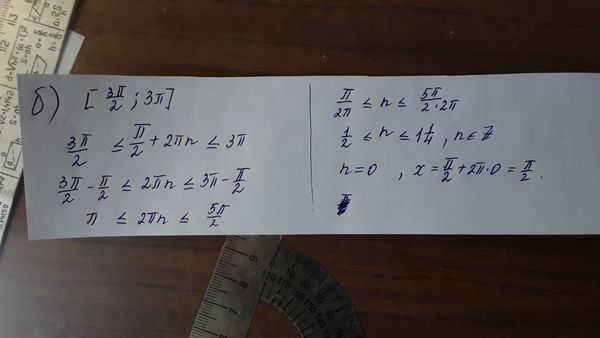 б) [ 3π/2 ; 3π ]
3π/2 ≤ π/2 + 2πn ≤ 3π
3π/2 - π/2 ≤ 2πn ≤ 3π - π/2
π ≤ 2πn ≤ 5π/2
π/2π ≤ n ≤ 5π/2·2π
1/2 ≤ n ≤ 1 1/4 , n ∈ Z
n=0 , x = π/2 + 2π·0 = π/2 .